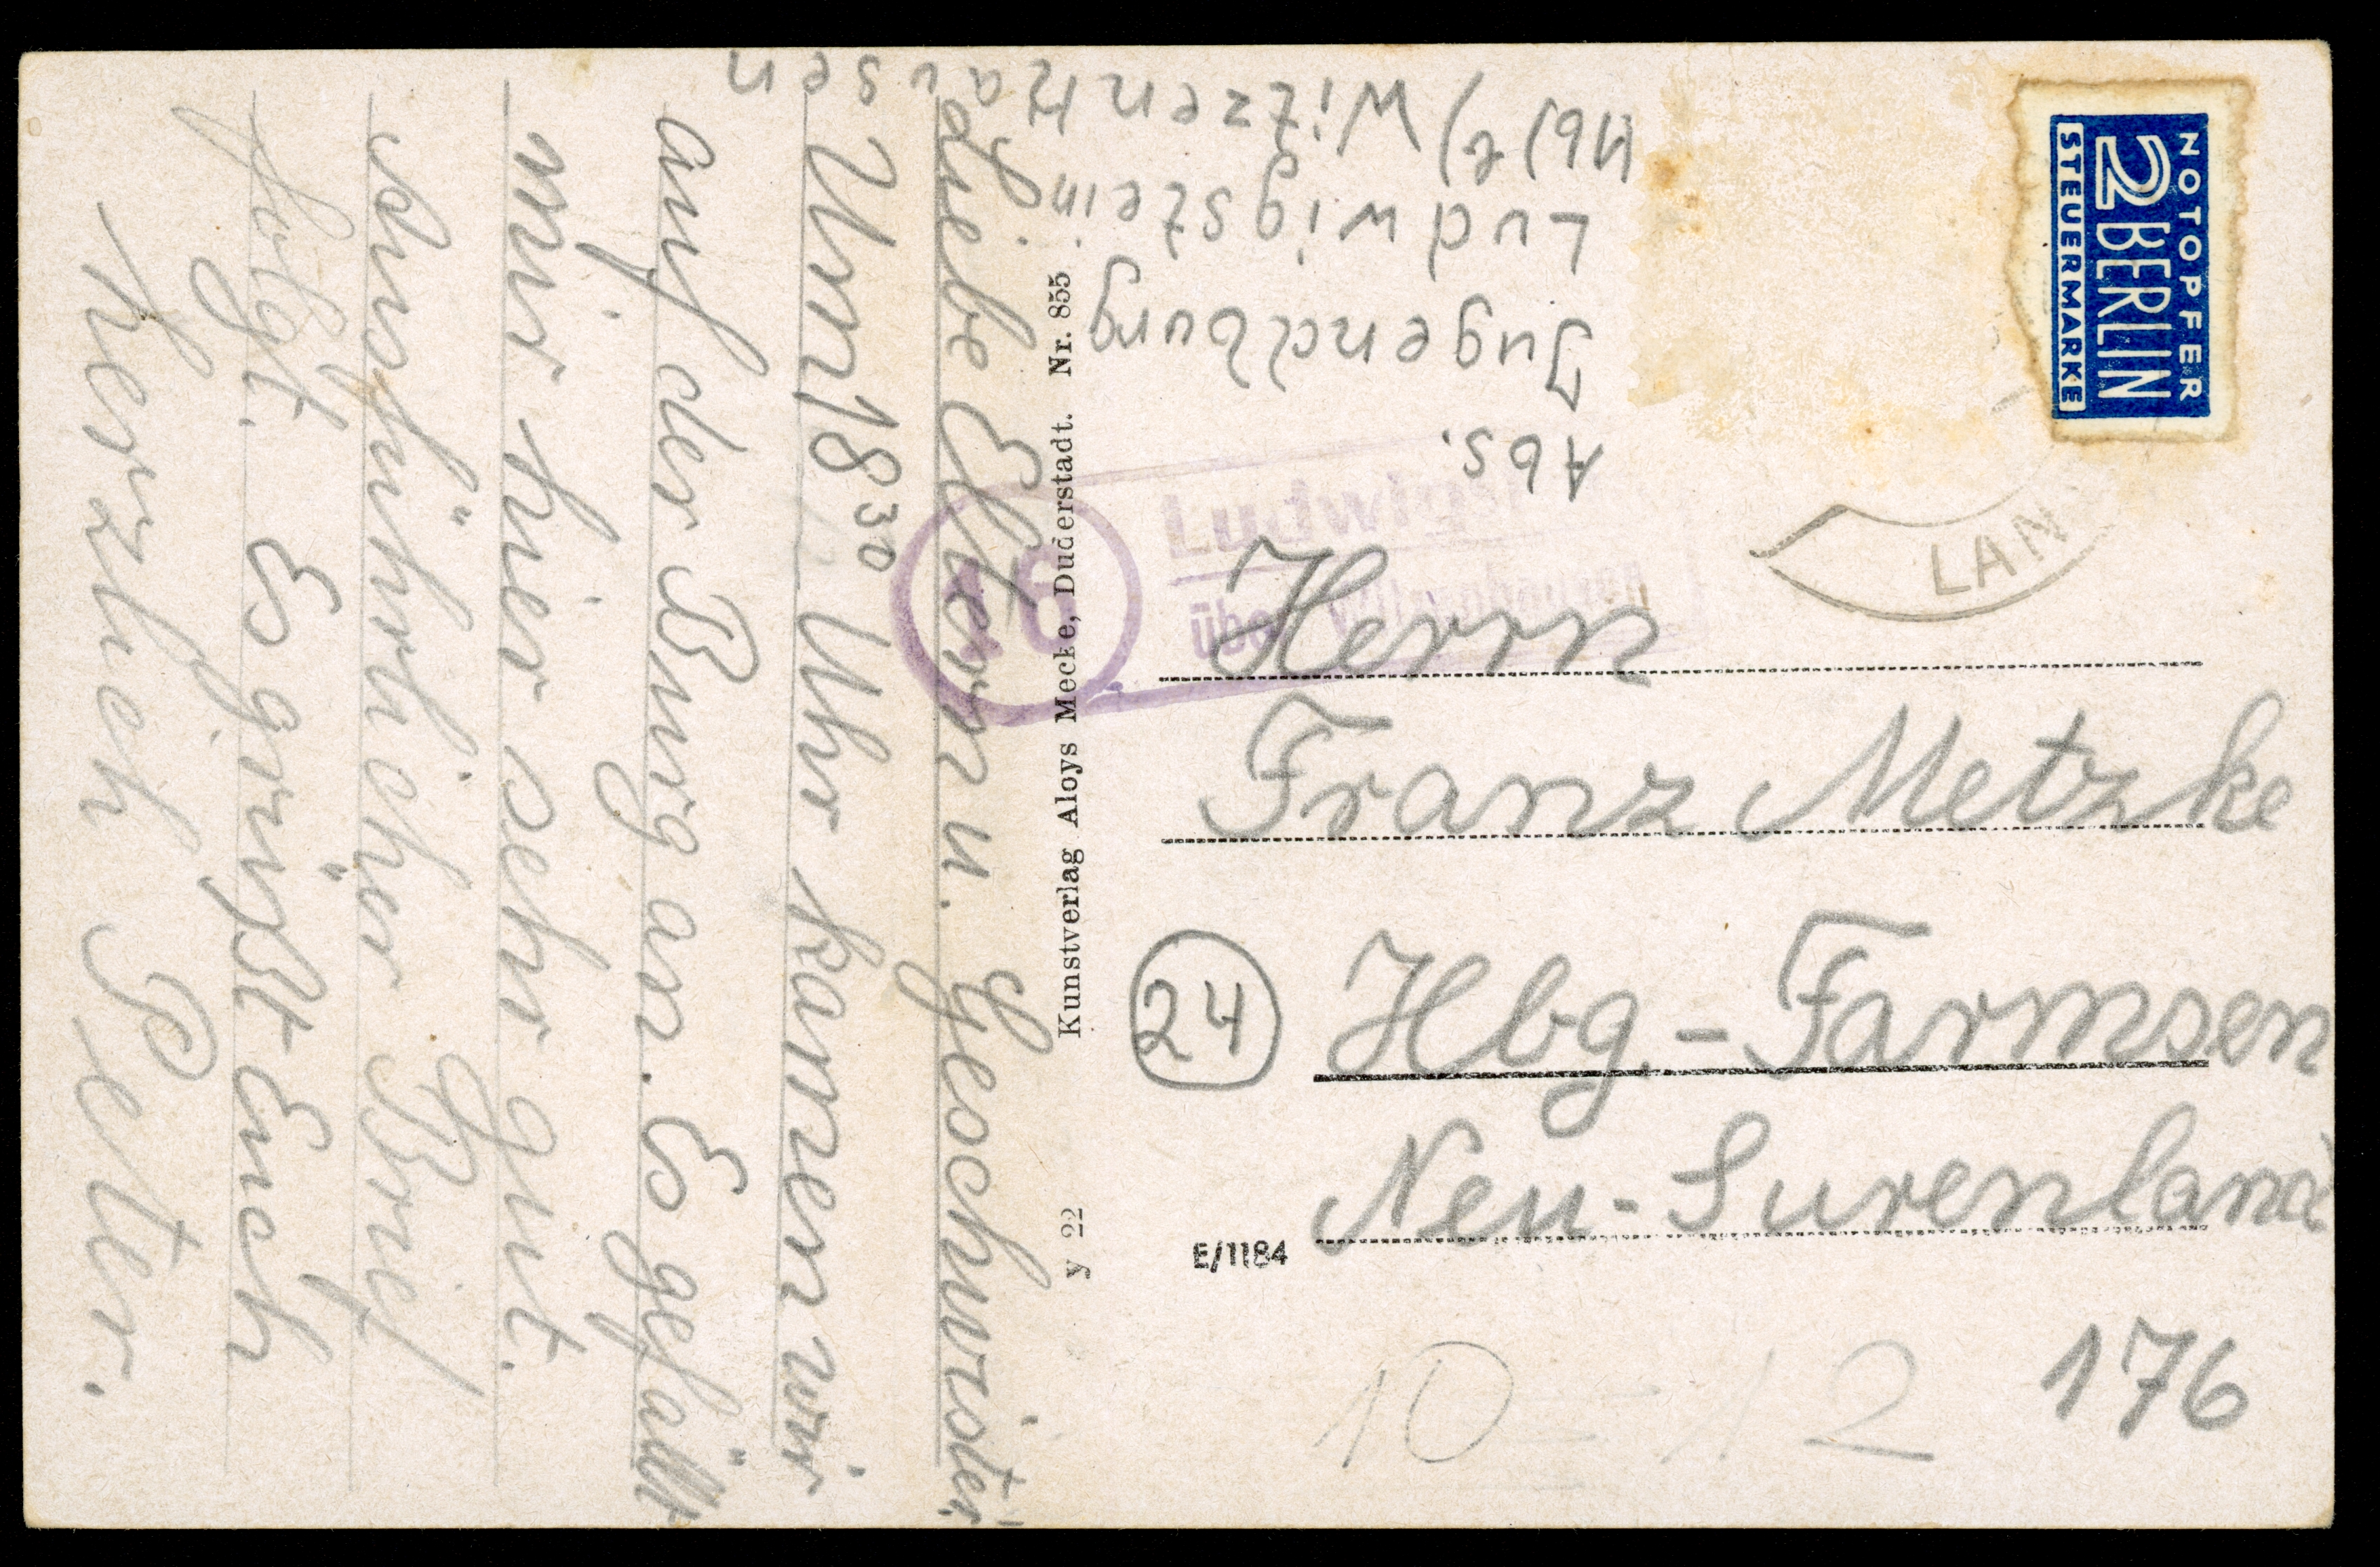 Liebe Eltern u. Geschwister!
Um 18³⁰ Uhr kamen wir
auf der Burg an. Es gefällt
mir hier sehr gut.
Ausführlicher Brief
folgt. Es grüßt Euch
herzlich Peter.
Abs.
Jugendburg
Ludwigstein
Witzenhausen
Kunstverlag Aloys Mecke, Duderstadt. Nr. 855
y 22
NOTOPFER
2 BERLIN
STEUERMARKE
LAN
16
über
Herrn
Franz Metzke
24
Hbg.-Farmsen
Neu-Surenland
E/1184
176
10 = 12